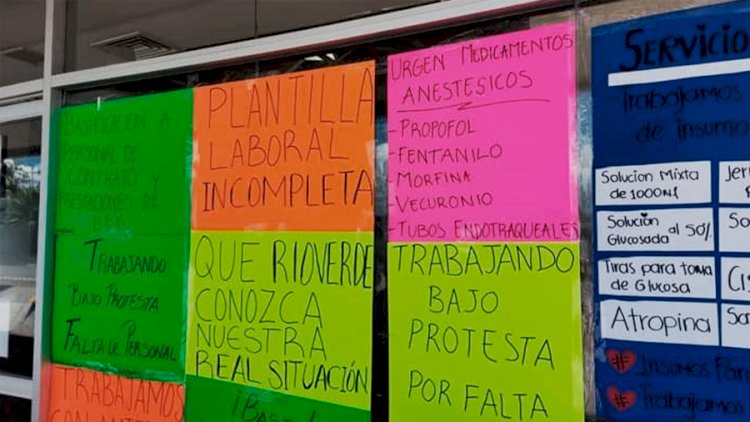 BASIFICACIÓN A
PERSONAL DE
CONTRATO Y
PRESTACIONES DE
LEY
TRABAJANDO
BAJO PROTESTA
FALTA DE PERSONAL
TRABAJAMOS
PLANTILLA
LABORAL
INCOMPLETA
QUE RIOVERDE
CONOZCA
NUESTRA
REAL SITUACIÓN
¡BASTA!
URGEN MEDICAMENTOS
ANESTESICOS
-PROPOFOL
-FENTANILO
-MORFINA
-VECURONIO
-TUBOS ENDOTRAQUEALES
TRABAJANDO
BAJO
PROTESTA
POR FALTA
SERVICIO
Trabajamos
de insumo
Solucion Mixta
de 1000ml
Solución al 50%
Glucosada
Tiras para toma
de Glucosa
Atropina
Jer
So
Cis
San
#Insumos Para
#Trabajamos